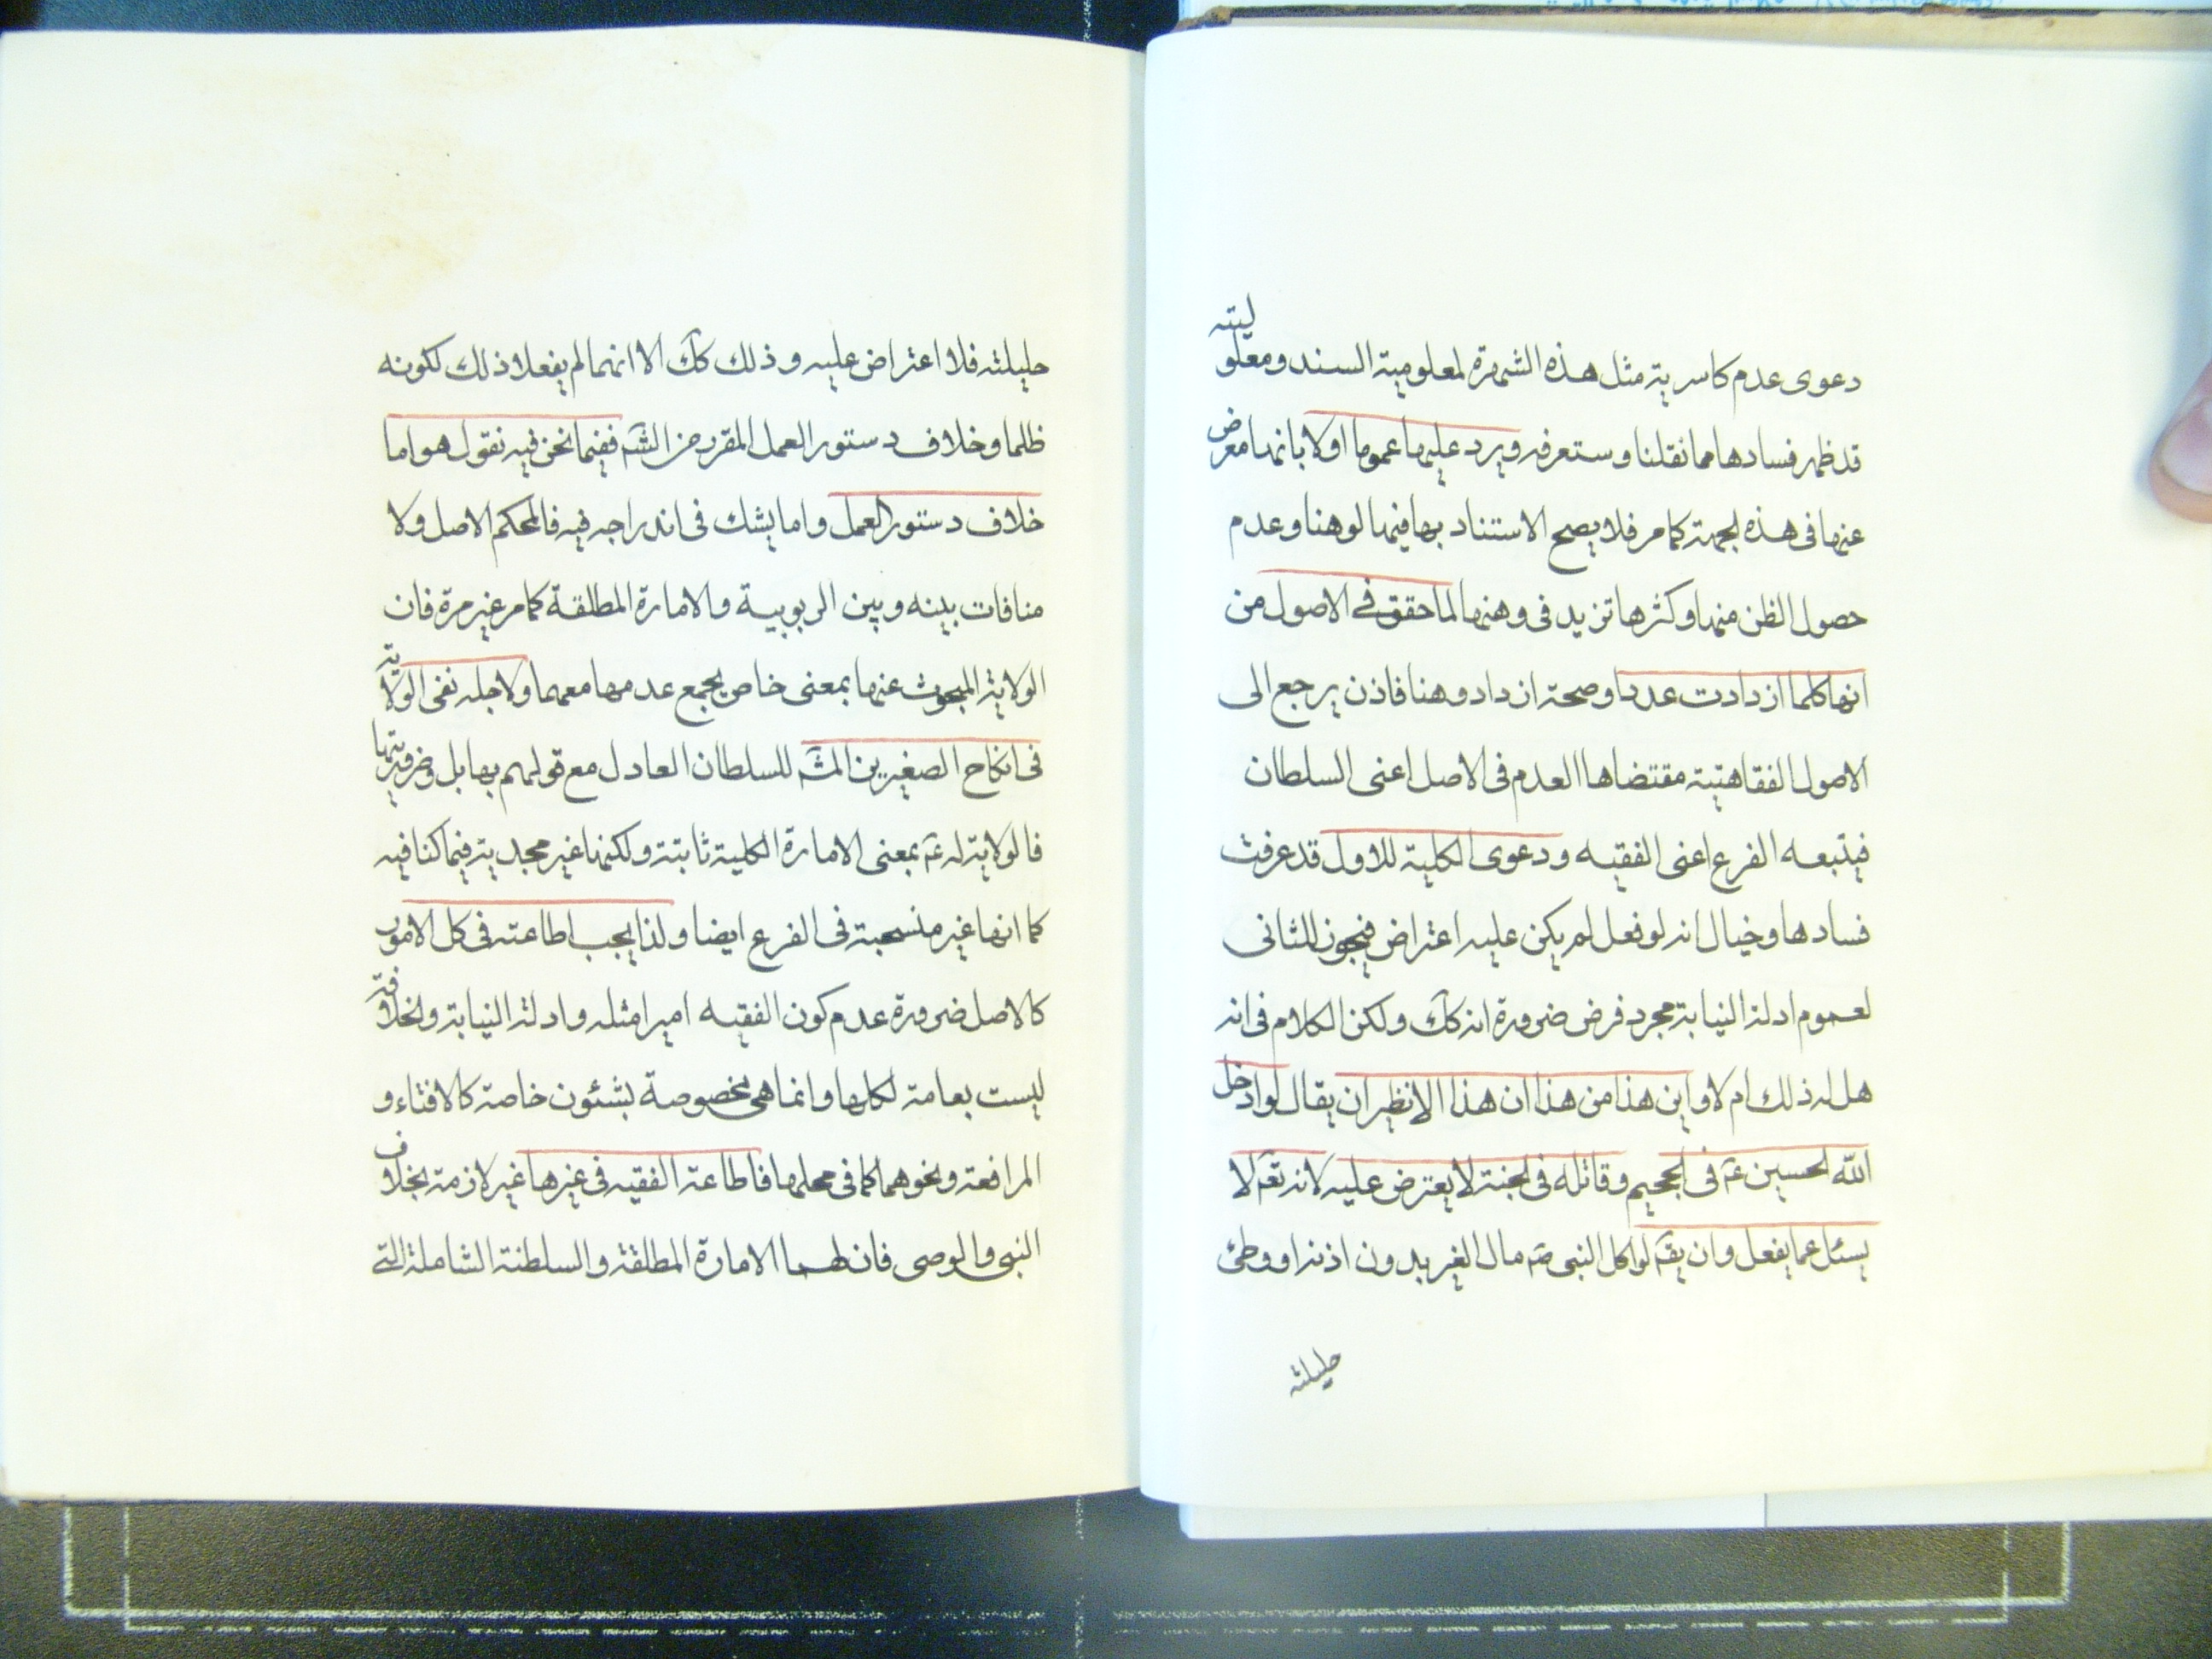 دعوى عدم كاسرية مثل هذه الشهرة لمعلومية السند ومعلو ليته
قد ظهر فسادها مما نقلنا وستعرفه ويرد عليها عموما اولا بانها معرض
عنها فى هذه الجهة كما مر فلا يصح الاستناد بها فيها لوهنا وعدم
حصول الظن منها وكثرها تزيد فى وهنها لما حقق فى الاصول من
انها كلما ازدادت عددا وصحة ازداد وهنا فاذن يرجع الى
الاصول الفقاهتية مقتضاها العدم فى الاصل اعنى السلطان
فيتبعه الفرع اعنى الفقيه ودعوى الكلية للاول قد عرفت
فسادها وخيال انه لو فعل لم يكن عليه اعتراض فيجوز للثانى
لعموم ادلة النيابة مجرد فرض ضرورة انه كك ولكن الكلام فى انه
هل له ذلك ام لا واين هذا من هذا ان هذا الا نظير ان يقال لو ادخل
الله الحسين عـ فى الجحيم وقاتله فى الجنة لا يعترض عليه لانه تعـ لا
يسئل عما يفعل وان يقـ لو اكل النبى صـ مال الغير بدون اذنه او وطئ
حليلته
حليلته فلا اعتراض عليه وذلك كك الا انهما لم يفعلا ذلك لكونه
ظلما وخلاف دستور العمل المقرر من الشـ ففيما نحن فيه نقول هو اما
خلاف دستور العمل واما يشك فى اندراجه فيه فالمحكم الاصل ولا
منافات بينه وبين الربوبية والامارة المطلقة كما مر غير مرة فان
الولاية المبحوث عنها بمعنى خاص يجمع عدمها معهما ولاجله نفى الولاية
فى انكاح الصغيرين المشـ للسلطان العادل مع قولهم بها بل وضروريتها
فالولاية له عـ بمعنى الامارة الكلية ثابتة ولكنها غير مجدية فيما كنا فيه
كما انها غير منسحبة فى الفرع ايضا ولذا يجب اطاعته فى كل الامور
كالاصل ضرورة عدم كون الفقيه اميرا مثله وادلة النيابة والخلافة
ليست بعامة لكلها وانما هى مخصوصة بشئون خاصة كالافتاء و
المرافعة ونحوهما كما فى محلها فاطاعة الفقيه فى غيرها غير لازمة بخلاف
النبى والوصى فان لهما الامارة المطلقة والسلطنة الشاملة التى